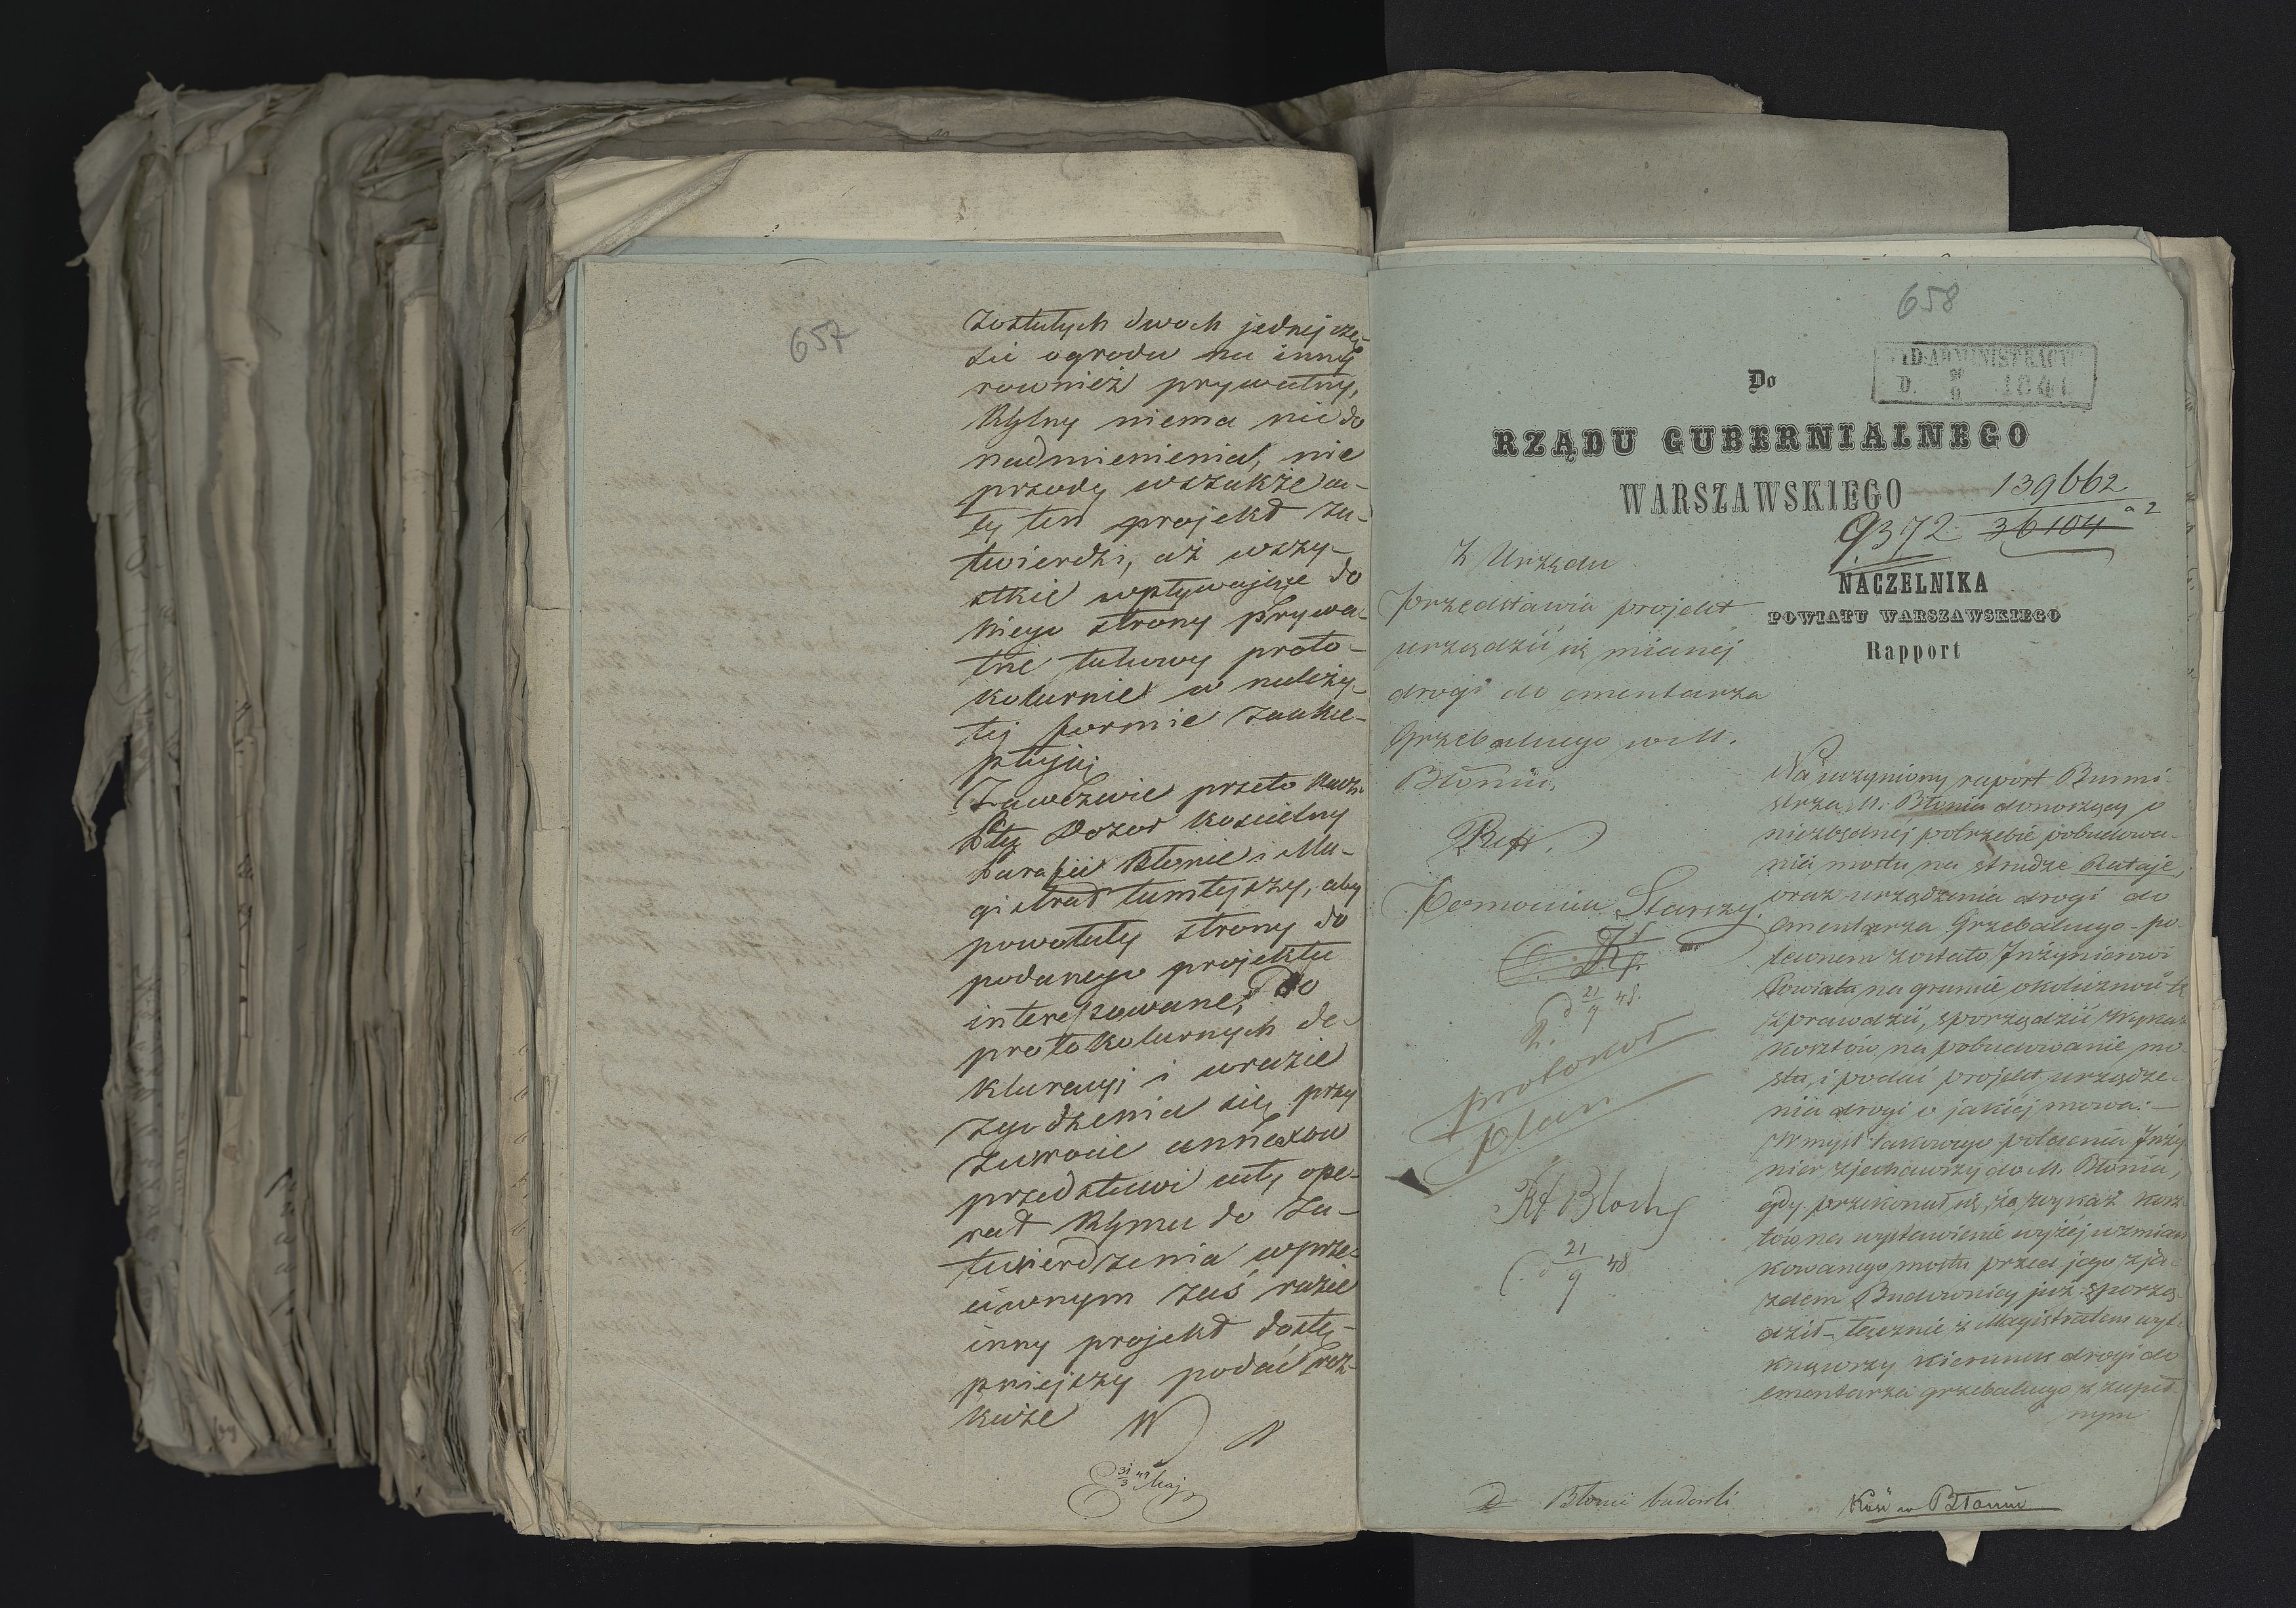 657
zostałych dwoch jednej czę-
ści ogrodu na inny
rownież prywatny,
Rząd Gblny niema nic do
nadmienienia, nie
przody wszakże ca-
ły ten projekt za-
twierdzi, aż wszy-
stkie wpływające do
niego strony prywa-
tne takowy proto-
kolarnie w należy-
tej formie zaakce-
ptują
Zawezwie przeto
Dozor kościelny
Parafii Błonie i Ma-
gistrat tamtejszy, aby
powołały strony do
podanego projektu
interessowane, do
protokolarnych de-
klaracyi i w razie
zgodzenia się przy
zwrocie annexow
przedstawi cały ope-
rat do za-
twierdzenia w prze-
ciwnym zaś razie
inny projekt dostę-
pniejszy podać
każe
31/3 49
658
WYD. ADMINISTRACYI
D. 9 184
Do
RZĄDU GUBERNIALNEGO
WARSZAWSKIEGO
139662
9372 36104
NACZELNIKA
POWIATU WARSZAWSKIEGO
Rapport
Z Urzędu
przedstawia projekt
urządzić się mianej
drogi do cmentarza
Grzebalnego w M.
Błoniu.
Starszy
21/9 48.
protokół
plan
21/9 48
Na uczyniony raport Burmi-
strza M. Błonia donoszący o
niezbędnej potrzebie pobudowa-
nia mostu na strudze Rutaje,
oraz urządzenia drogi do
Cmentarza Grzebalnego - po-
leconem zostało Inżynierowi
Powiatu na gruncie okoliczność tę
sprawdzić, sporządzić wykaz
kosztów na pobudowanie mo-
stu, i podać projekt urządze-
nia drogi o jakiej mowa: -
W myśl takowego polecenia Inży
nier zjechawszy do M. Błonia,
gdy przekonał się, że wykaz kosz-
tów na wystawienie wyżej wzmian
kowanego mostu przed jego zja-
zdem Budowniczy już sporzą-
dził - łącznie z Magistratem wyt-
knąwszy kierunek drogi do
cmentarza grzebalnego z zupeł
nym
Błonie
Kość w Błoniu